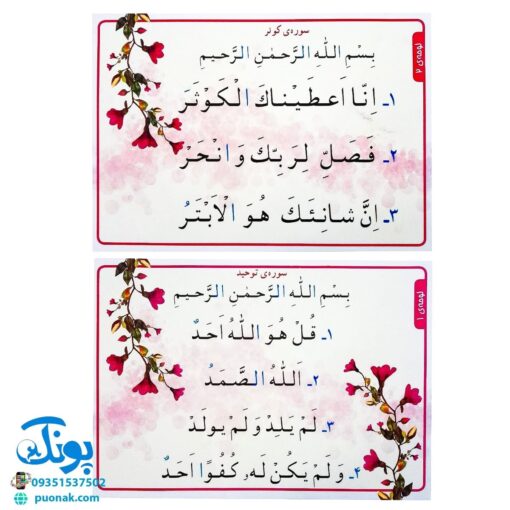 سوره‌ی کوثر
لوحه‌ی ۲
بِسْمِ اللّٰهِ الرَّحمٰنِ الرَّحیمِ
۱ـ اِنّا اَعطَیْناكَ الْكَوْثَرَ
۲ـ فَصَلِّ لِرَبِّكَ وَانْحَرْ
۳ـ اِنَّ شانِئَكَ هُوَ الْاَبْتَرُ
سوره‌ی توحید
لوحه‌ی ۱
بِسْمِ اللّٰهِ الرَّحمٰنِ الرَّحیمِ
۱ـ قُلْ هُوَ اللّٰهُ اَحَدٌ
۲ـ اَللّٰهُ الصَّمَدُ
۳ـ لَمْ یَلِدْ وَلَمْ یولَدْ
۴ـ وَلَمْ یَكُنْ لَهۥ كُفُوًا اَحَدٌ
پونک
09351537502
puonak.com